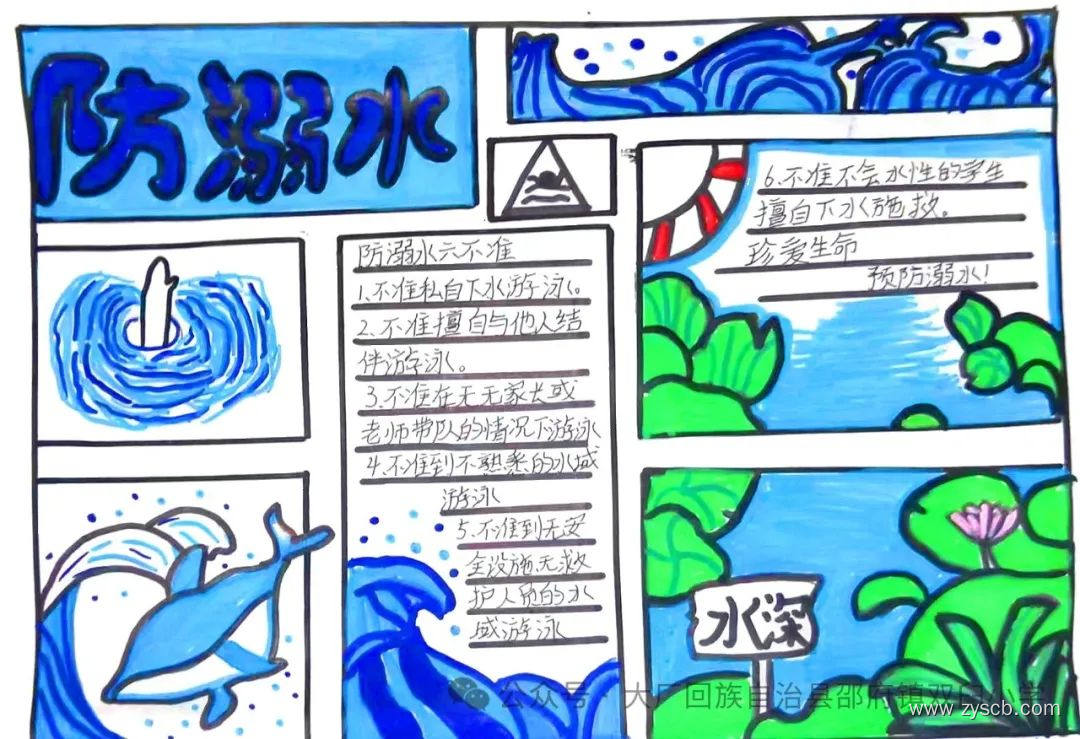 防溺水
防溺水六不准
1.不准私自下水游泳。
2.不准擅自与他人结
伴游泳。
3.不准在无无家长或
老师带队的情况下游泳
4.不准到不熟悉的水域
游泳
5.不准到无安
全设施、无救
护人员的水
域游泳
6.不准不会水性的学生
擅自下水施救。
珍爱生命
预防溺水!
水深
公众号·大厂回族自治县邵府镇双臼小学
www.zyscb.com